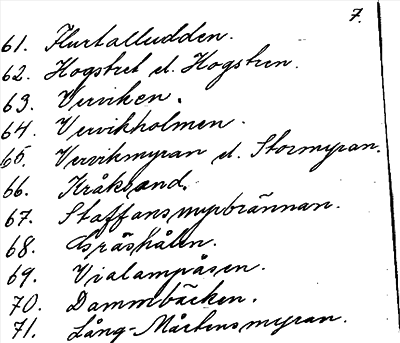 7.
61. Flurtalludden.
62. Hogstret el. Hogsten.
63. Verviken.
64. Vervikholmen.
65. Vervikmyran el. Stormyran.
66. Kråksand.
67. Staffansmyrbrännan.
68. Gräshålen.
69. Vialampåsen.
70. Dammbäcken.
71. Lång-Mårtensmyran.